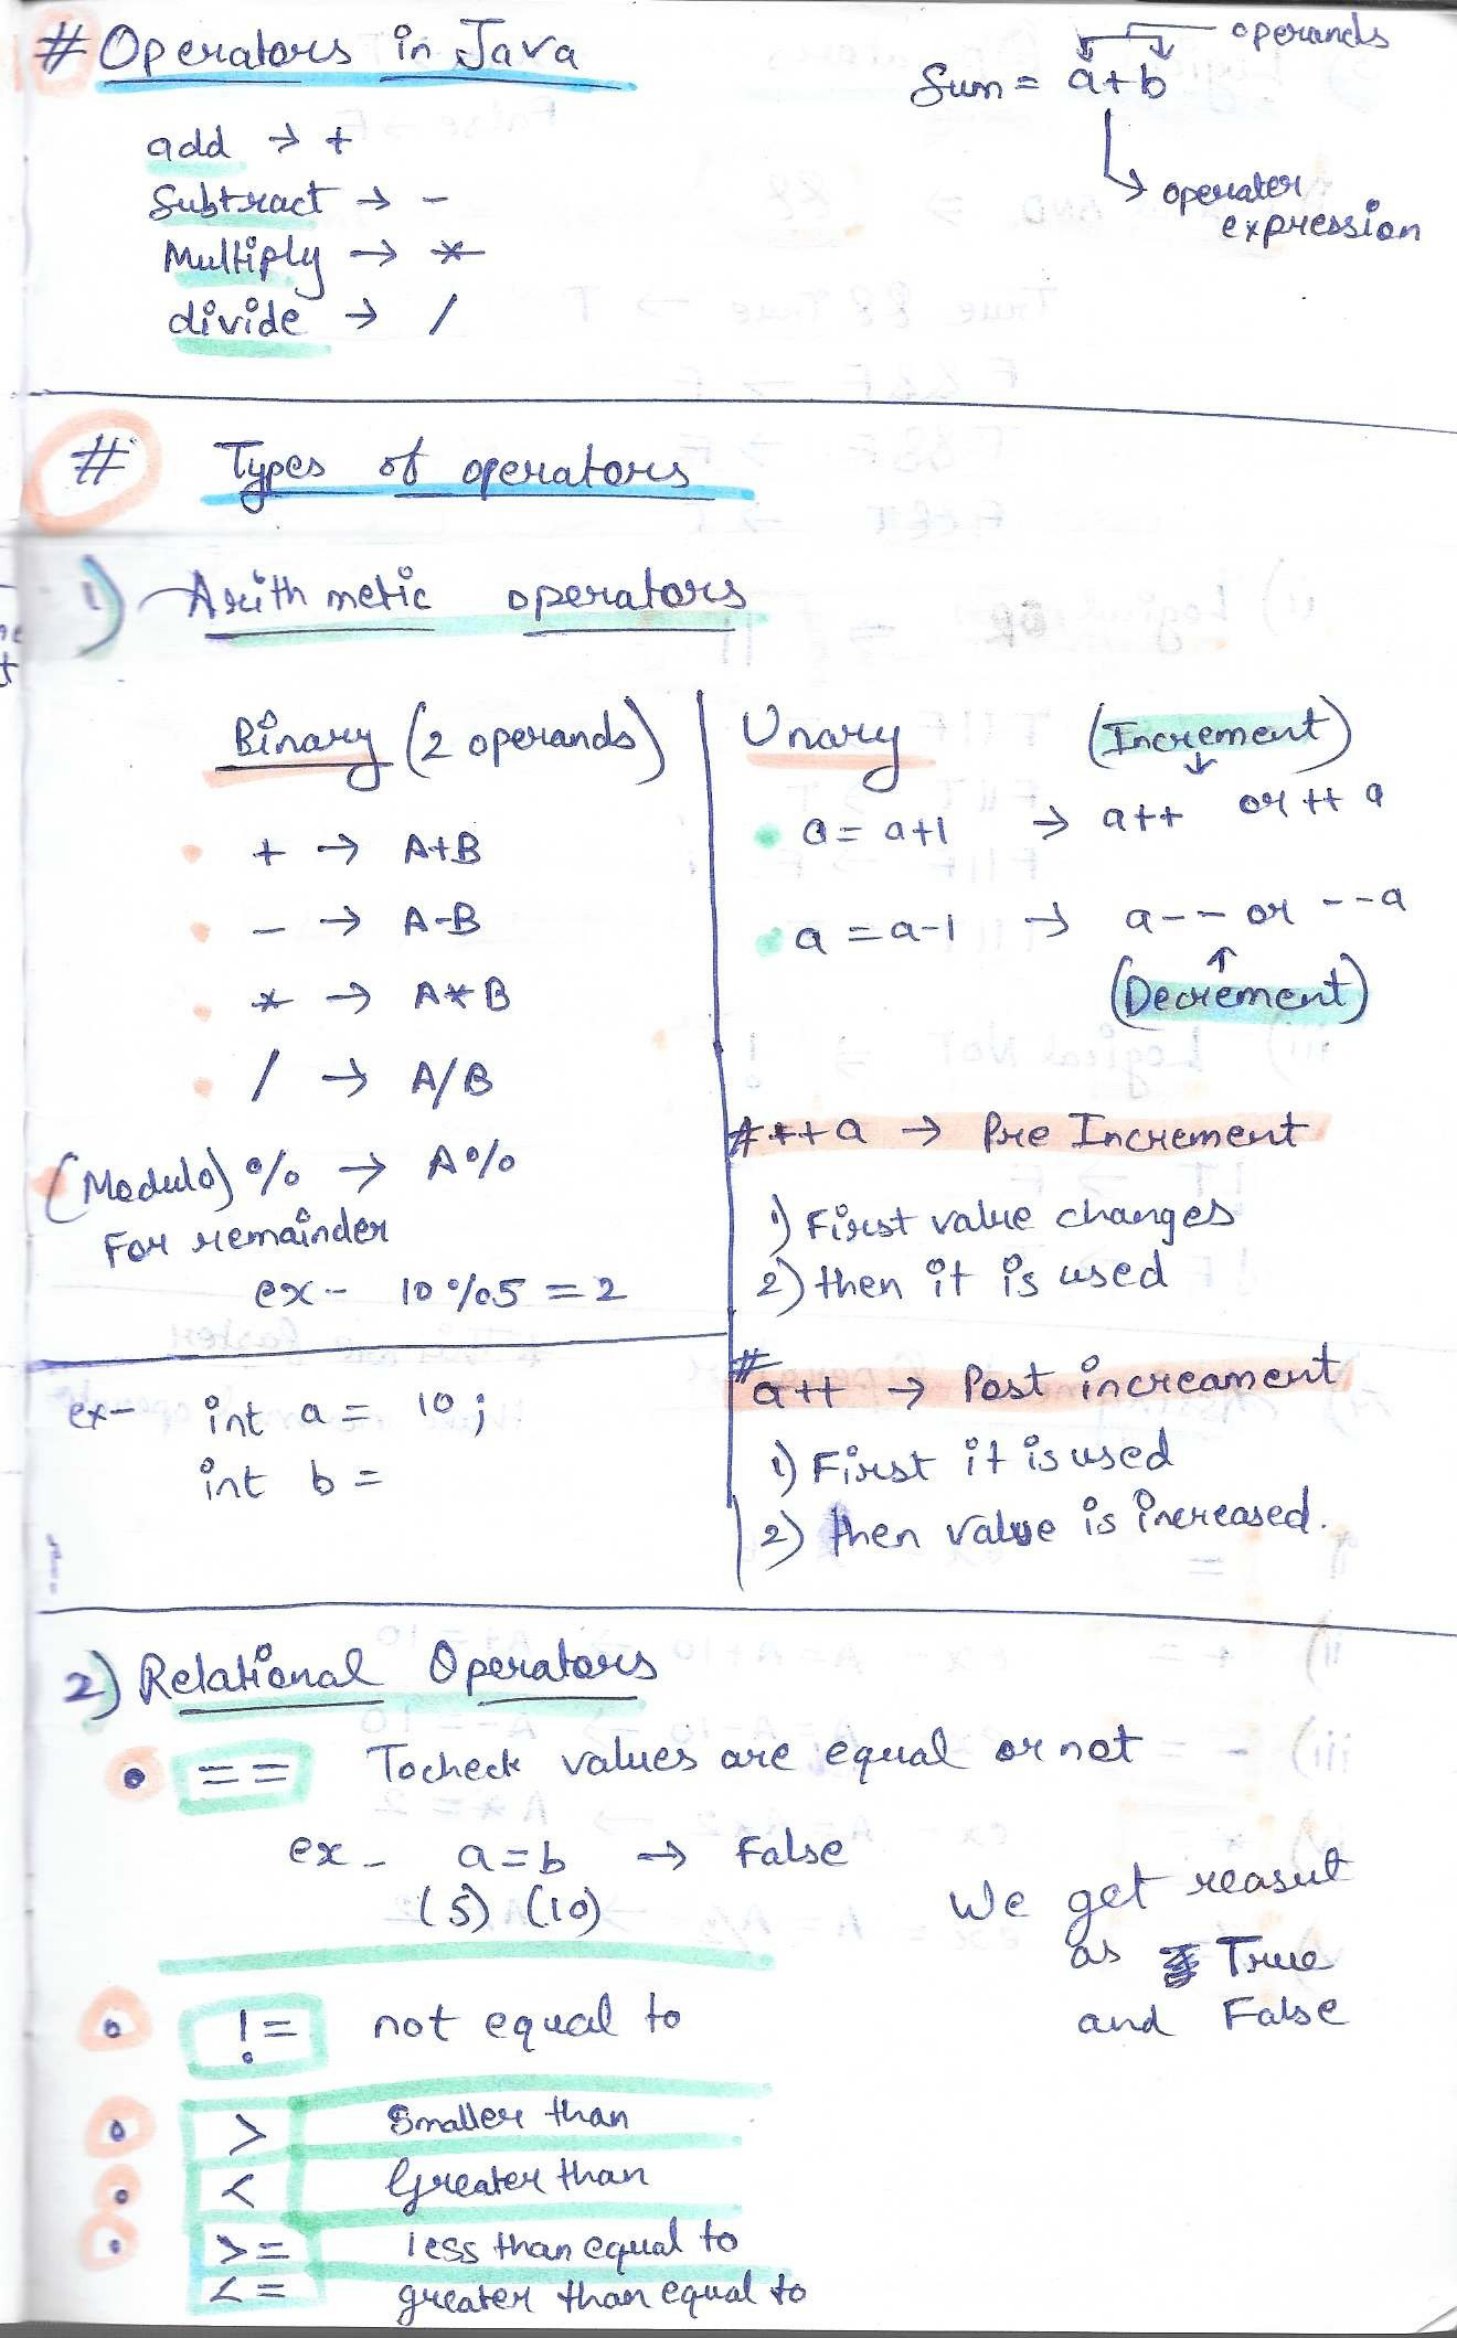 # Operators in Java
operands
Sum = a+b
operater
expression
add → +
Subtract → -
Multiply → *
divide → /
# Types of operators
1) Arithmetic operators
Binary (2 operands)
+ → A+B
- → A-B
* → A*B
/ → A/B
(Modulo) % → A%
For remainder
ex- 10%5 = 2
ex- int a = 10;
int b =
Unary (Increment)
a = a+1 → a++ or ++a
a = a-1 → a-- or --a
(Decrement)
# ++a → Pre Increment
1) First value changes
2) then it is used
# a++ → Post increament
1) First it is used
2) then value is increased.
2) Relational Operators
== To check values are equal or not
ex- a=b → False
(5) (10)
We get reasult
as True
and False
!= not equal to
> Smaller than
< Greater than
>= less than equal to
<= greater than equal to